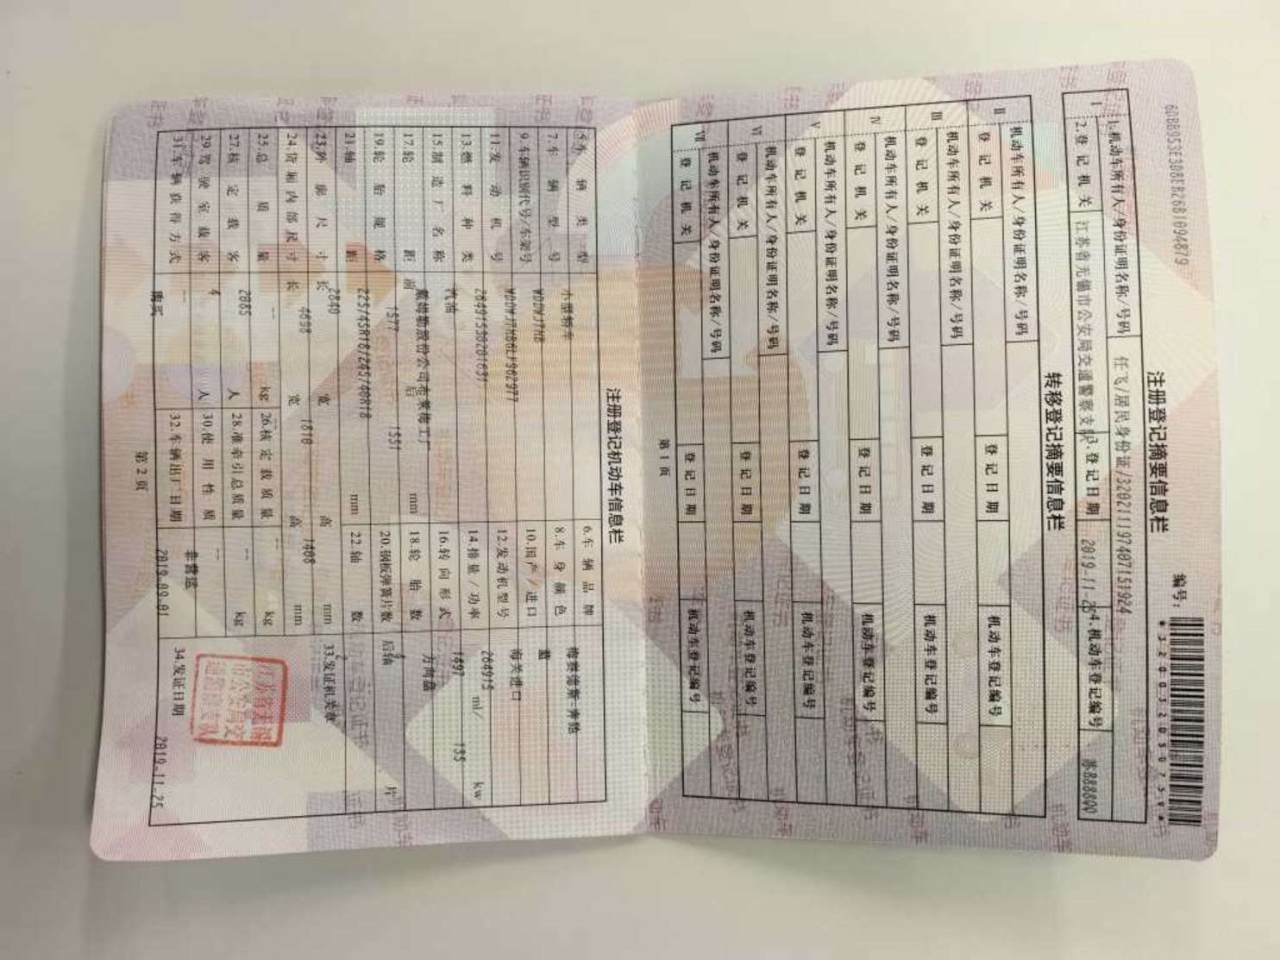 6DBB953E308FB26B1094879
注册登记摘要信息栏
编号：
*320032050759*
Ⅰ
1.机动车所有人/身份证明名称/号码 任飞/居民身份证/320211197407151924
2.登记机关 江苏省无锡市公安局交通警察支队 3.登记日期 2019-11-25 4.机动车登记编号 苏B888QQ
转移登记摘要信息栏
Ⅱ
机动车所有人/身份证明名称/号码
登记机关 登记日期 机动车登记编号
Ⅲ
机动车所有人/身份证明名称/号码
登记机关 登记日期 机动车登记编号
Ⅳ
机动车所有人/身份证明名称/号码
登记机关 登记日期 机动车登记编号
Ⅴ
机动车所有人/身份证明名称/号码
登记机关 登记日期 机动车登记编号
Ⅵ
机动车所有人/身份证明名称/号码
登记机关 登记日期 机动车登记编号
Ⅶ
机动车所有人/身份证明名称/号码
登记机关 登记日期 机动车登记编号
第1页
注册登记机动车信息栏
5.车辆类型 小型轿车 6.车辆品牌 梅赛德斯-奔驰
7.车辆型号 WDDWJ7HB 8.车身颜色
9.车辆识别代号/车架号 10.国产/进口 海关进口
11.发动机号 26491530201631 12.发动机型号 264915
13.燃料种类 汽油 14.排量/功率 1497 ml/ 135 kw
15.制造厂名称 戴姆勒股份公司布莱梅工厂 16.转向形式 方向盘
17.轮距 前 1577 后 1551 mm 18.轮胎数 4
19.轮胎规格 225/45R18/245/40R18 20.钢板弹簧片数 后轴 片
21.轴距 2840 mm 22.轴数 2
23.外廓尺寸 长 4698 宽 1810 高 1408 mm 33.发证机关章
24.货厢内部尺寸 长 宽 高 mm
25.总质量 2085 kg 26.核定载质量 -- kg
27.核定载客 4 人 28.准牵引总质量 -- kg
29.驾驶室载客 -- 人 30.使用性质 非营运
31.车辆获得方式 购买 32.车辆出厂日期 2019-09-01 34.发证日期 2019-11-25
江苏省无锡
市公安局交
通警察支队
第2页